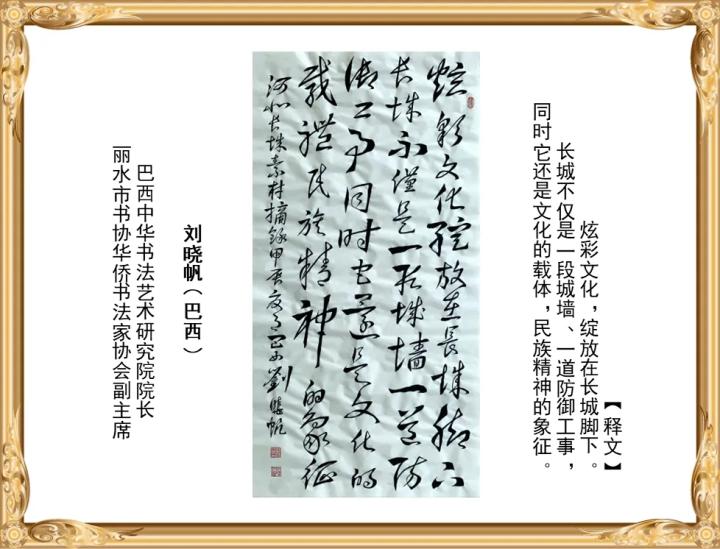 【释文】
炫彩文化，绽放在长城脚下。
长城不仅是一段城墙、一道防御工事，
同时它还是文化的载体，民族精神的象征。
炫彩文化绽放在長城脚下
长城不仅是一段城墙一道防
御工事同时它还是文化的
载體民族精神的象征
河北长城素材摘录甲辰夏月
刘晓帆（巴西）
巴西中华书法艺术研究院院长
丽水市书协华侨书法家协会副主席